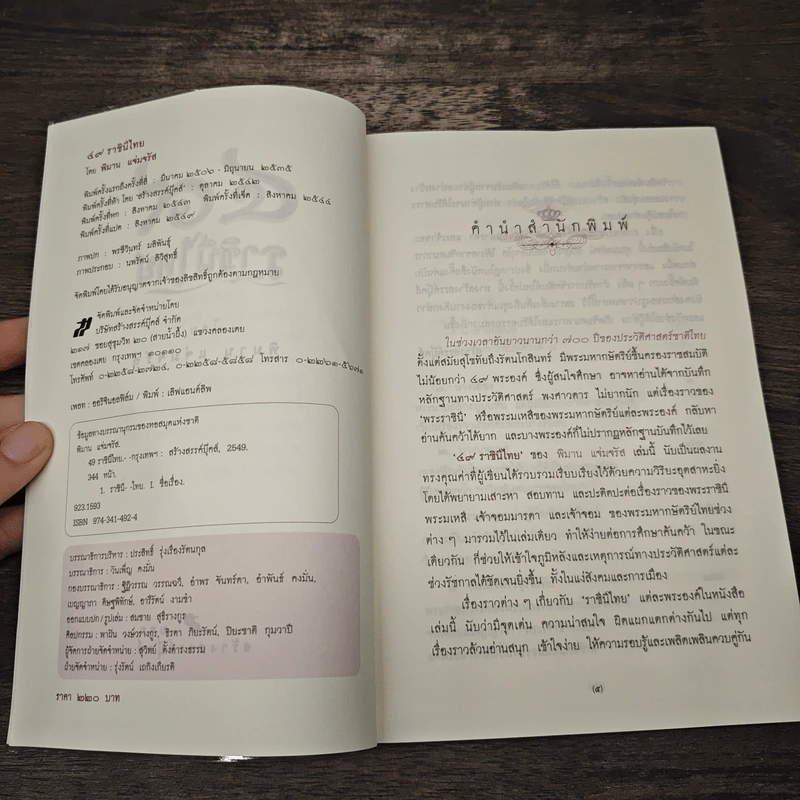 ๔๙ ราชินีไทย
โดย พิมาน แจ่มจรัส
พิมพ์ครั้งแรกถึงครั้งที่สี่ : มีนาคม ๒๕๐๖ - มิถุนายน ๒๕๓๕
พิมพ์ครั้งที่ห้า โดย 'สร้างสรรค์บุ๊คส์' : ตุลาคม ๒๕๔๒
พิมพ์ครั้งที่หก : สิงหาคม ๒๕๔๓ พิมพ์ครั้งที่เจ็ด : สิงหาคม ๒๕๔๔
พิมพ์ครั้งที่แปด : สิงหาคม ๒๕๔๙
ภาพปก : พรชีวินทร์ มลิพันธุ์
ภาพประกอบ : นพรัตน์ ลิวิสุทธิ์
จัดพิมพ์โดยได้รับอนุญาตจากเจ้าของลิขสิทธิ์ถูกต้องตามกฎหมาย
จัดพิมพ์และจัดจำหน่ายโดย
บริษัทสร้างสรรค์บุ๊คส์ จำกัด
๒๑๗ ซอยสุขุมวิท ๒๐ (สายน้ำผึ้ง) แขวงคลองเตย
เขตคลองเตย กรุงเทพฯ ๑๐๑๑๐
โทรศัพท์ ๐-๒๒๕๘-๒๗๒๔, ๐-๒๒๕๘-๕๔๕๔ โทรสาร ๐-๒๒๖๑-๕๖๗๑
เพลท : ออริจินอลฟิล์ม / พิมพ์ : เลิฟแอนด์ลิพ
ข้อมูลทางบรรณานุกรมของหอสมุดแห่งชาติ
พิมาน แจ่มจรัส.
49 ราชินีไทย.- -กรุงเทพฯ : สร้างสรรค์บุ๊คส์, 2549.
344 หน้า.
1. ราชินี- -ไทย. I. ชื่อเรื่อง.
923.1593
ISBN 974-341-492-4
บรรณาธิการบริหาร : ประสิทธิ์ รุ่งเรืองรัตนกุล
บรรณาธิการ : วันเพ็ญ คงมั่น
กองบรรณาธิการ : ฐิฏิวรรณ วรรณฉวี, อำพร จันทร์ดา, อำพันธ์ คงมั่น,
เบญญาภา ดิษฐพิทักษ์, อารีรัตน์ งามขำ
ออกแบบปก/รูปเล่ม : สมชาย สุธีรางกูร
ศิลปกรรม : พาฝัน วงษ์วรางกูร, ธิรดา ภิยะรัตน์, ปิยะชาติ กุมวาปี
ผู้จัดการฝ่ายจัดจำหน่าย : สุวิทย์ ตั้งดำรงธรรม
ฝ่ายจัดจำหน่าย : รุ่งรัตน์ เถกิงเกียรติ
ราคา ๒๒๐ บาท
คำนำสำนักพิมพ์
ในช่วงเวลาอันยาวนานกว่า ๗๐๐ ปีของประวัติศาสตร์ชาติไทย
ตั้งแต่สมัยสุโขทัยถึงรัตนโกสินทร์ มีพระมหากษัตริย์ขึ้นครองราชสมบัติ
ไม่น้อยกว่า ๔๙ พระองค์ ซึ่งผู้สนใจศึกษา อาจหาอ่านได้จากบันทึก
หลักฐานทางประวัติศาสตร์ พงศาวดาร ไม่ยากนัก แต่เรื่องราวของ
'พระราชินี' หรือพระมเหสีของพระมหากษัตริย์แต่ละพระองค์ กลับหา
อ่านค้นคว้าได้ยาก และบางพระองค์ก็ไม่ปรากฏหลักฐานบันทึกไว้เลย
'๔๙ ราชินีไทย' ของ พิมาน แจ่มจรัส เล่มนี้ นับเป็นผลงาน
ทรงคุณค่าที่ผู้เขียนได้รวบรวมเรียบเรียงไว้ด้วยความวิริยะอุตสาหะยิ่ง
โดยได้พยายามเสาะหา สอบทาน และปะติดปะต่อเรื่องราวของพระราชินี
พระมเหสี เจ้าจอมมารดา และเจ้าจอม ของพระมหากษัตริย์ไทยช่วง
ต่าง ๆ มารวมไว้ในเล่มเดียว ทำให้ง่ายต่อการศึกษาค้นคว้า ในขณะ
เดียวกัน ก็ช่วยให้เข้าใจภูมิหลังและเหตุการณ์ทางประวัติศาสตร์แต่ละ
ช่วงรัชกาลได้ชัดเจนยิ่งขึ้น ทั้งในแง่สังคมและการเมือง
เรื่องราวต่าง ๆ เกี่ยวกับ 'ราชินีไทย' แต่ละพระองค์ในหนังสือ
เล่มนี้ นับว่ามีจุดเด่น ความน่าสนใจ ผิดแผกแตกต่างกันไป แต่ทุก
เรื่องราวล้วนอ่านสนุก เข้าใจง่าย ให้ความรอบรู้และเพลิดเพลินควบคู่กัน
(๕)